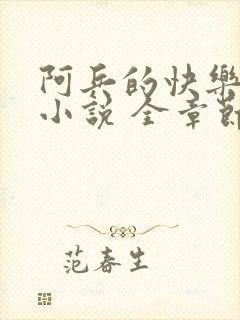 阿兵的快樂
小說 全章節
范春生